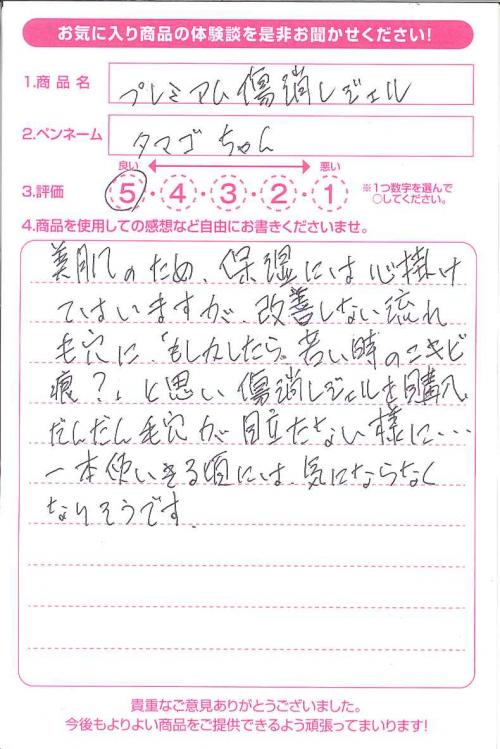 お気に入り商品の体験談を是非お聞かせください!
1.商品名 プレミアム傷消しジェル
2.ペンネーム タマゴちゃん
良い 悪い
3.評価 5・4・3・2・1 ※1つ数字を選んで
○してください。
4.商品を使用しての感想など自由にお書きくださいませ。
美肌のため、保湿には心掛け
てはいますが、改善しない流れ
毛穴に、「もしかしたら。若い時のニキビ
痕?」と思い傷消しジェルを購入。
だんだん毛穴が目立たない様に・・・
一本使いきる頃には、気にならなく
なりそうです。
貴重なご意見ありがとうございました。
今後もよりよい商品をご提供できるよう頑張ってまいります!